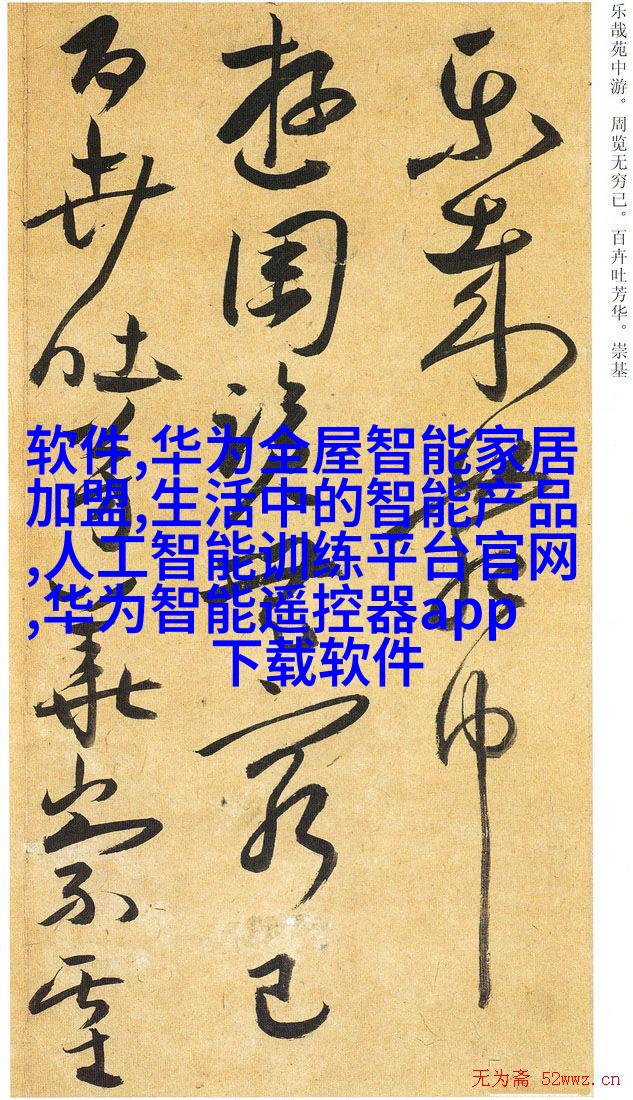 乐哉苑中游。周览无穷已。百卉吐芳华。崇基
樂哉苑中
遊周覽無窮已
百卉吐芳華崇基
软件,华为全屋智能家居
加盟,生活中的智能产品
,人工智能训练平台官网
,华为智能遥控器app
下载软件
无为斋 52wwz.cn